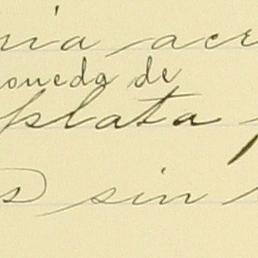 ria acr
moneda de
plata
s sin